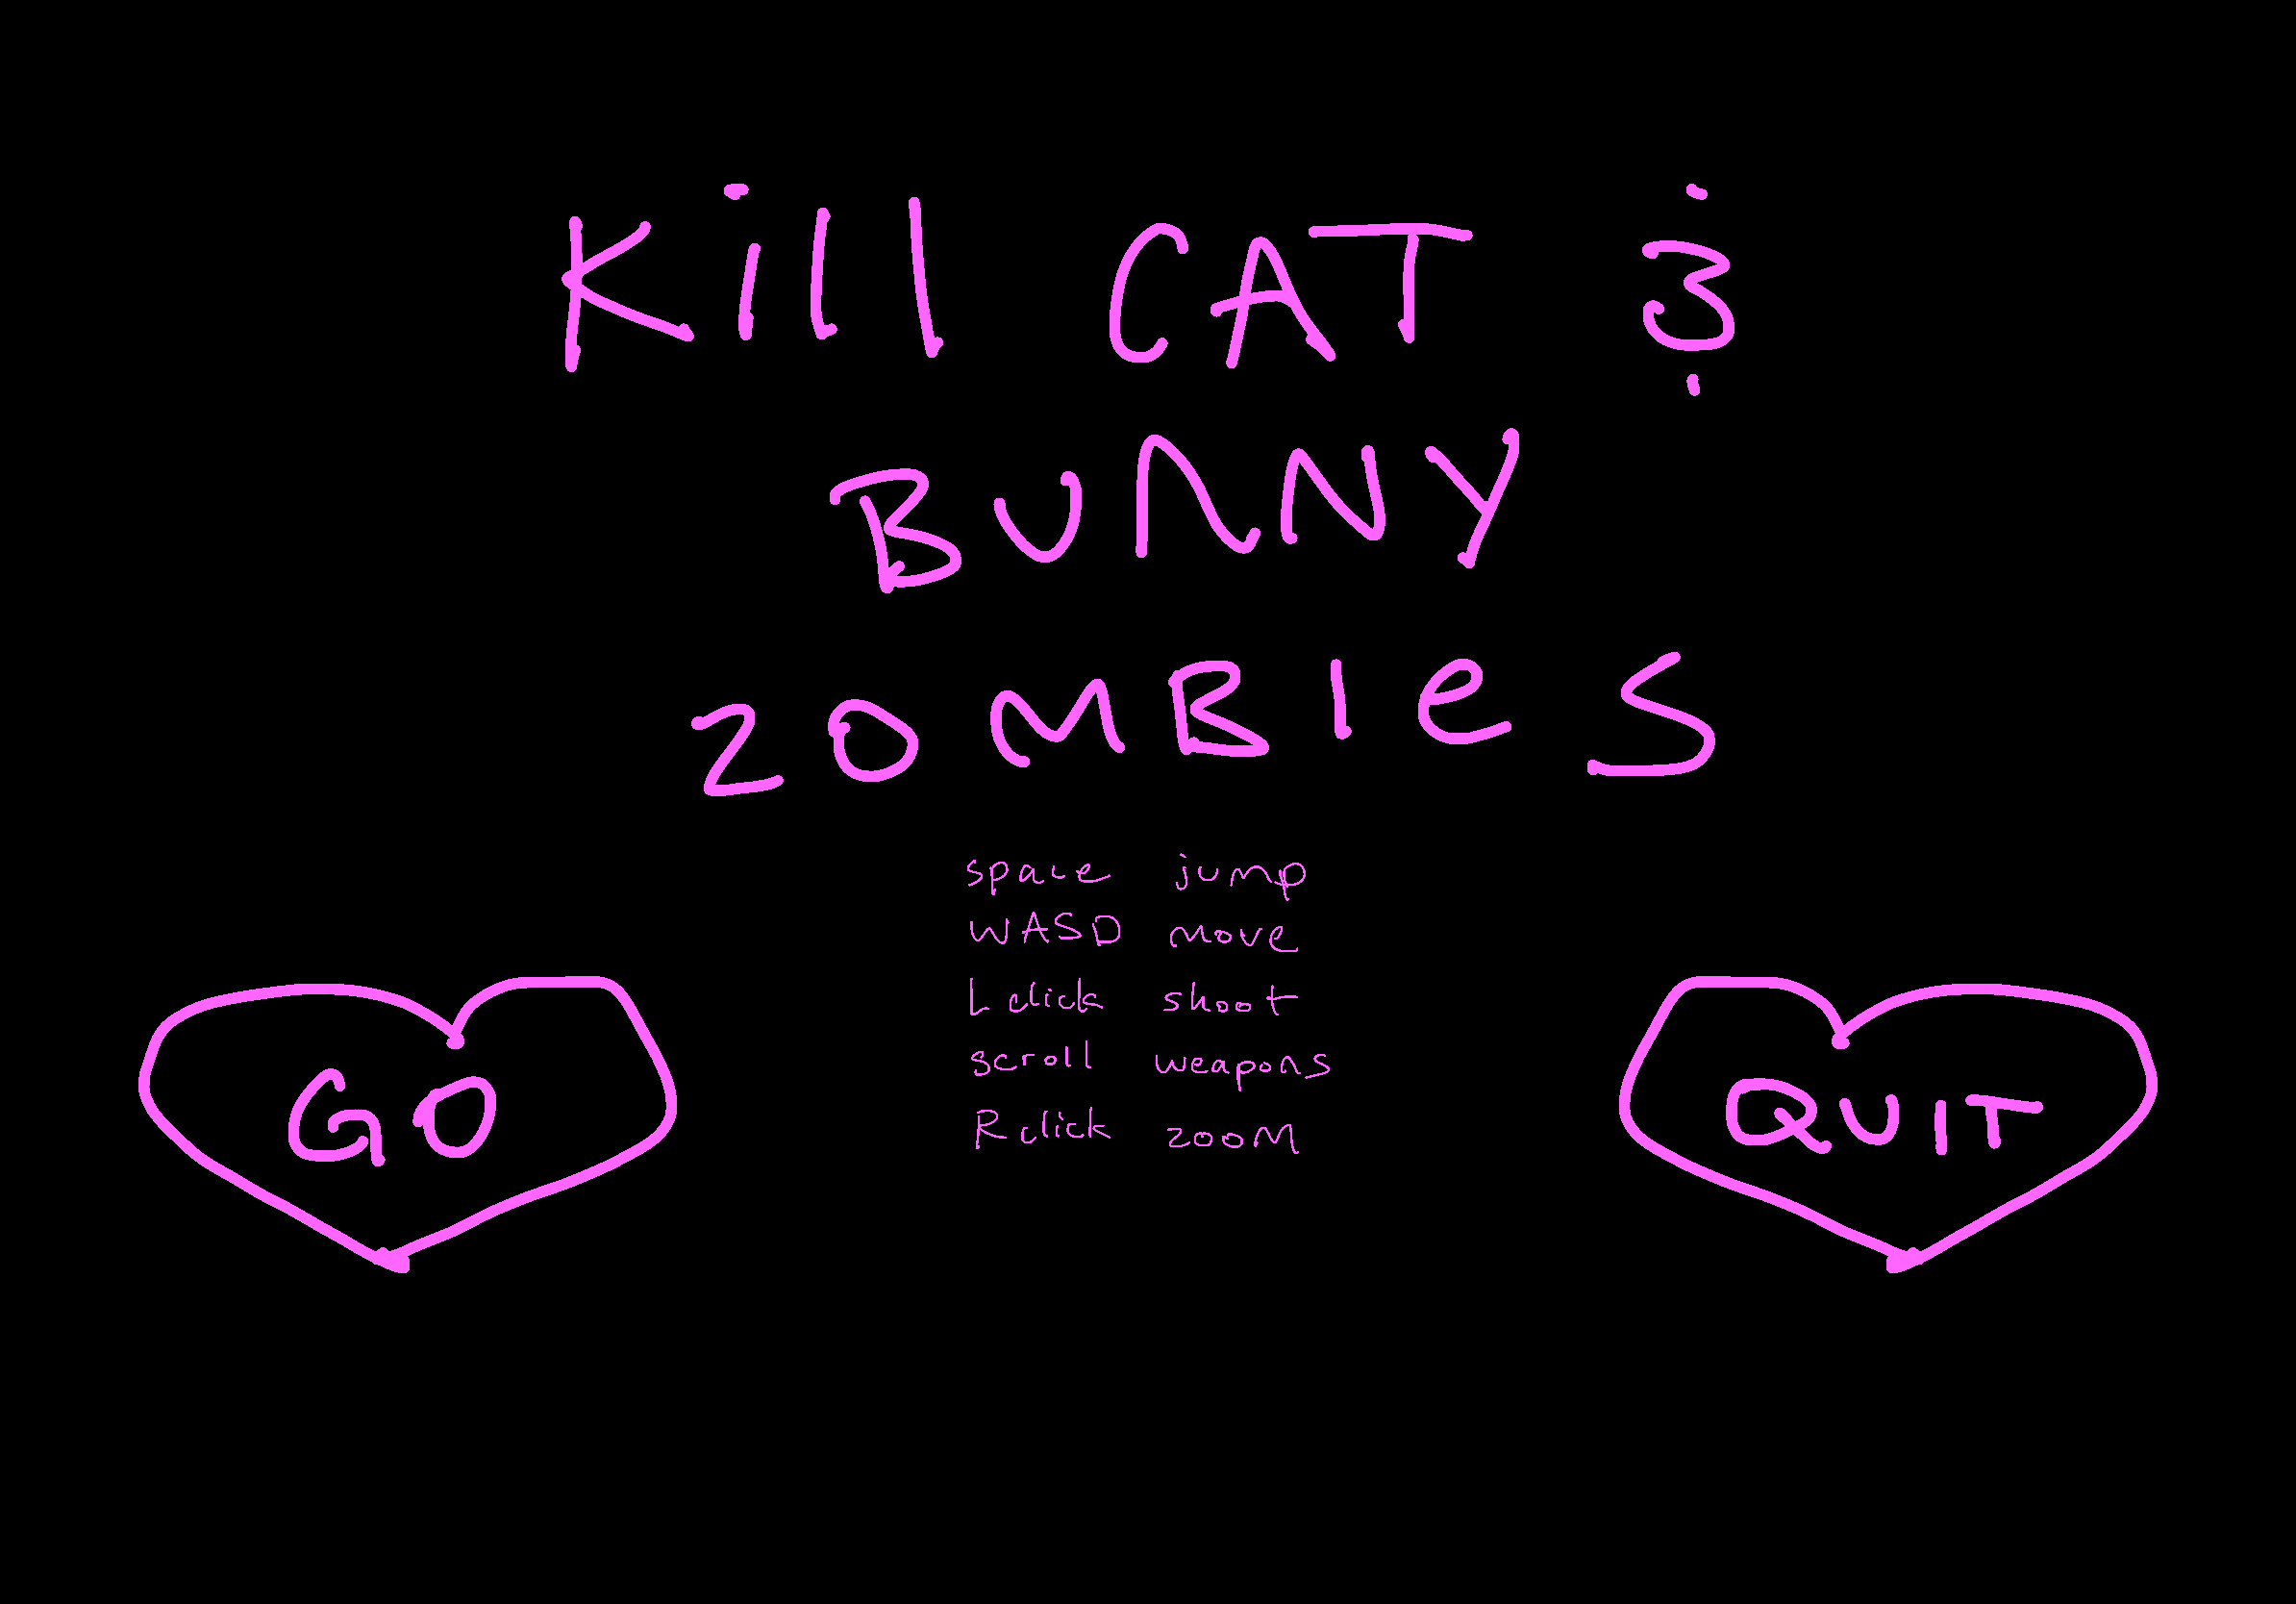 Kill CAT &
BUNNY
ZOMBIes
space jump
WASD move
L click shoot
scroll weapons
R click zooM
GO
QUIT